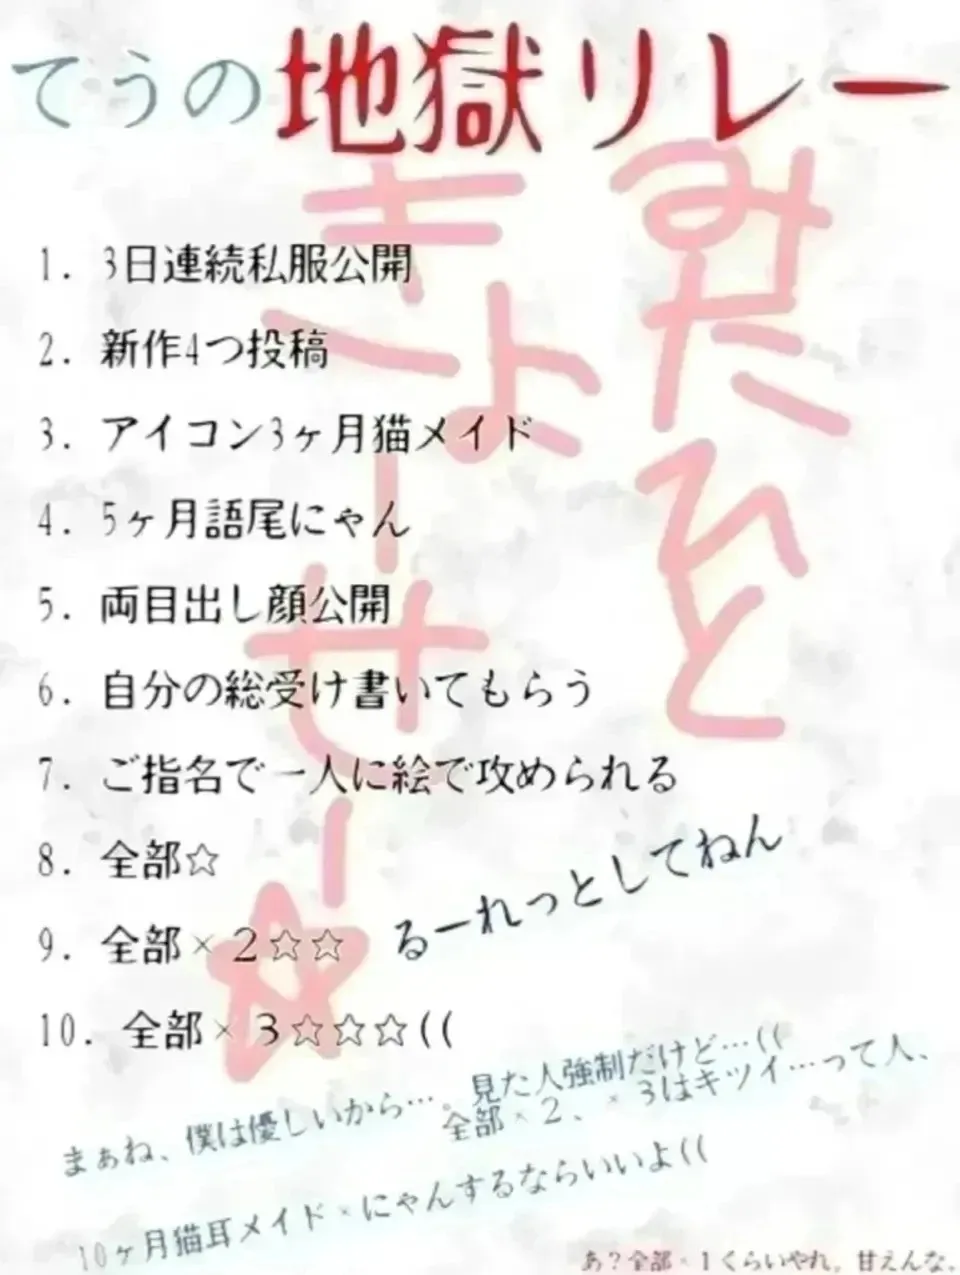 てうの地獄リレー
みたひと
きょーせー☆
1. 3日連続私服公開
2. 新作4つ投稿
3. アイコン3ヶ月猫メイド
4. 5ヶ月語尾にゃん
5. 両目出し顔公開
6. 自分の総受け書いてもらう
7. ご指名で一人に絵で攻められる
8. 全部☆
9. 全部×2☆☆
10. 全部×3☆☆☆((
るーれっとしてねん
まぁね、僕は優しいから…。見た人強制だけど…((
全部×2、×3はキツイ…って人、
10ヶ月猫耳メイド×にゃんするならいいよ((
あ?全部×1くらいやれ。甘えんな。